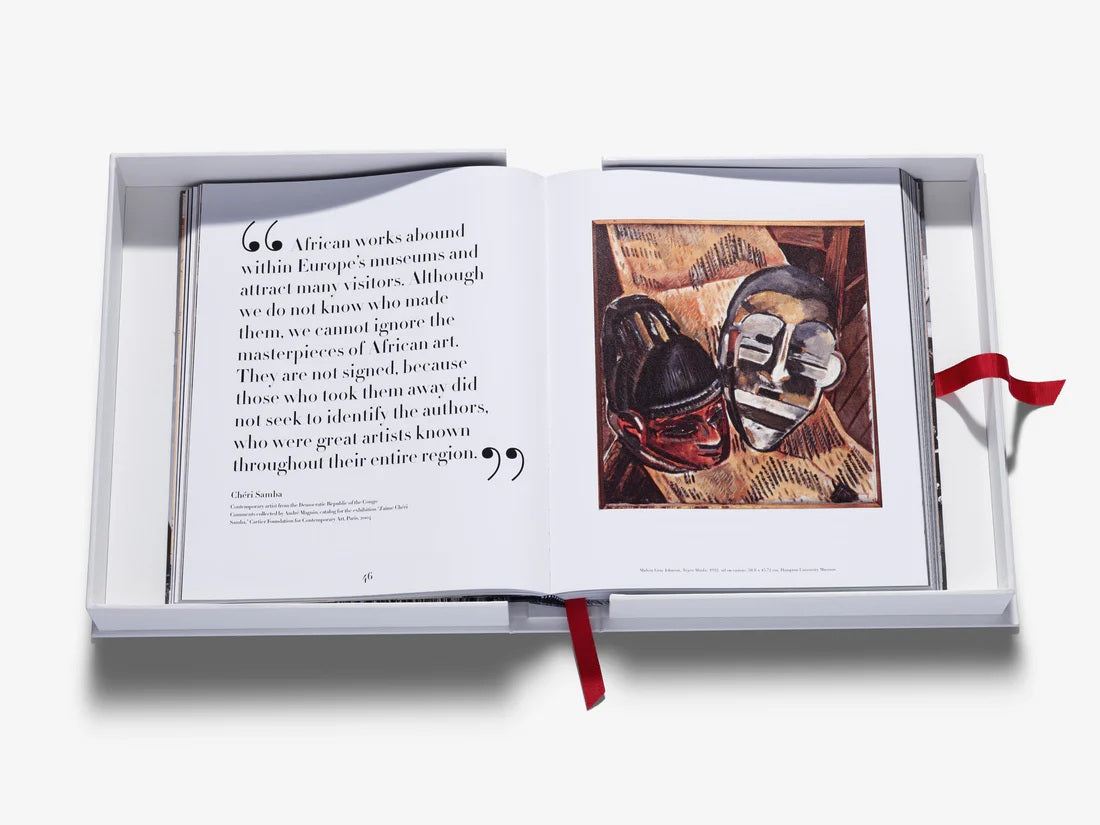 “ African works abound
within Europe’s museums and
attract many visitors. Although
we do not know who made
them, we cannot ignore the
masterpieces of African art.
They are not signed, because
those who took them away did
not seek to identify the authors,
who were great artists known
throughout their entire region. ”
Chéri Samba
Contemporary artist from the Democratic Republic of the Congo
Comments collected by André Magnin, catalog for the exhibition “J’aime Chéri
Samba,” Cartier Foundation for Contemporary Art, Paris, 2004
46
Malvin Gray Johnson, Negro Masks, 1932, oil on canvas, cm, Hampton University Museum